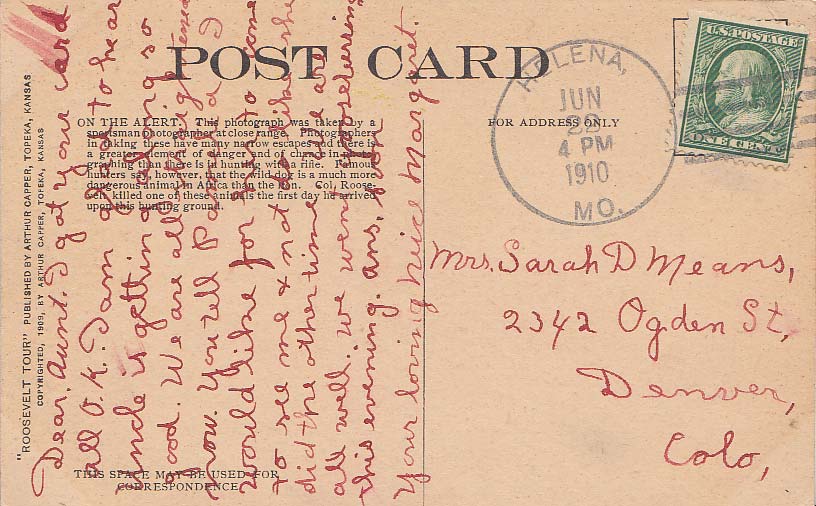 POST CARD
"ROOSEVELT TOUR" PUBLISHED BY ARTHUR CAPPER, TOPEKA, KANSAS
COPYRIGHTED, 1909, BY ARTHUR CAPPER, TOPEKA, KANSAS
ON THE ALERT. This photograph was taken by a
sportsman photographer at close range. Photographers
in taking these have many narrow escapes and there is
a greater element of danger and of chance in photo-
graphing than there is in hunting with a rifle. Famous
hunters say, however, that the wild dog is a much more
dangerous animal in Africa than the lion. Col, Roose-
velt killed one of these animals the first day he arrived
upon this hunting ground.
THIS SPACE MAY BE USED FOR
CORRESPONDENCE
Dear, Aunt. I got your card
all O.K. I am glad to hear
Uncle is getting along so
good. We are all alright
now. You tell Pansy I
would like for her to come
to see me & not do like she
did the other time. We are
all well. We went gooseberring
this evening. Ans. soon
Your loving neice Margaret.
FOR ADDRESS ONLY
HELENA,
JUN
22
4 PM
1910
MO.
U.S. POSTAGE
ONE CENT
Mrs. Sarah D Means,
2342 Ogden St,
Denver,
Colo,